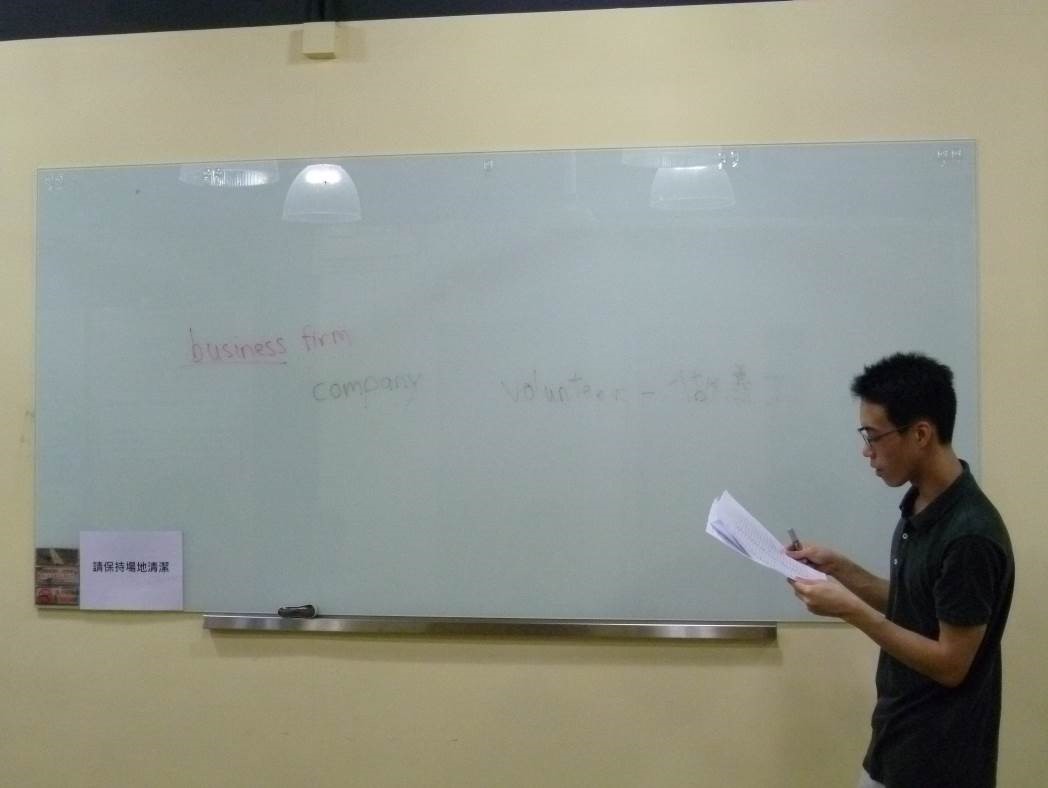 business firm
company
volunteer -
請保持場地清潔